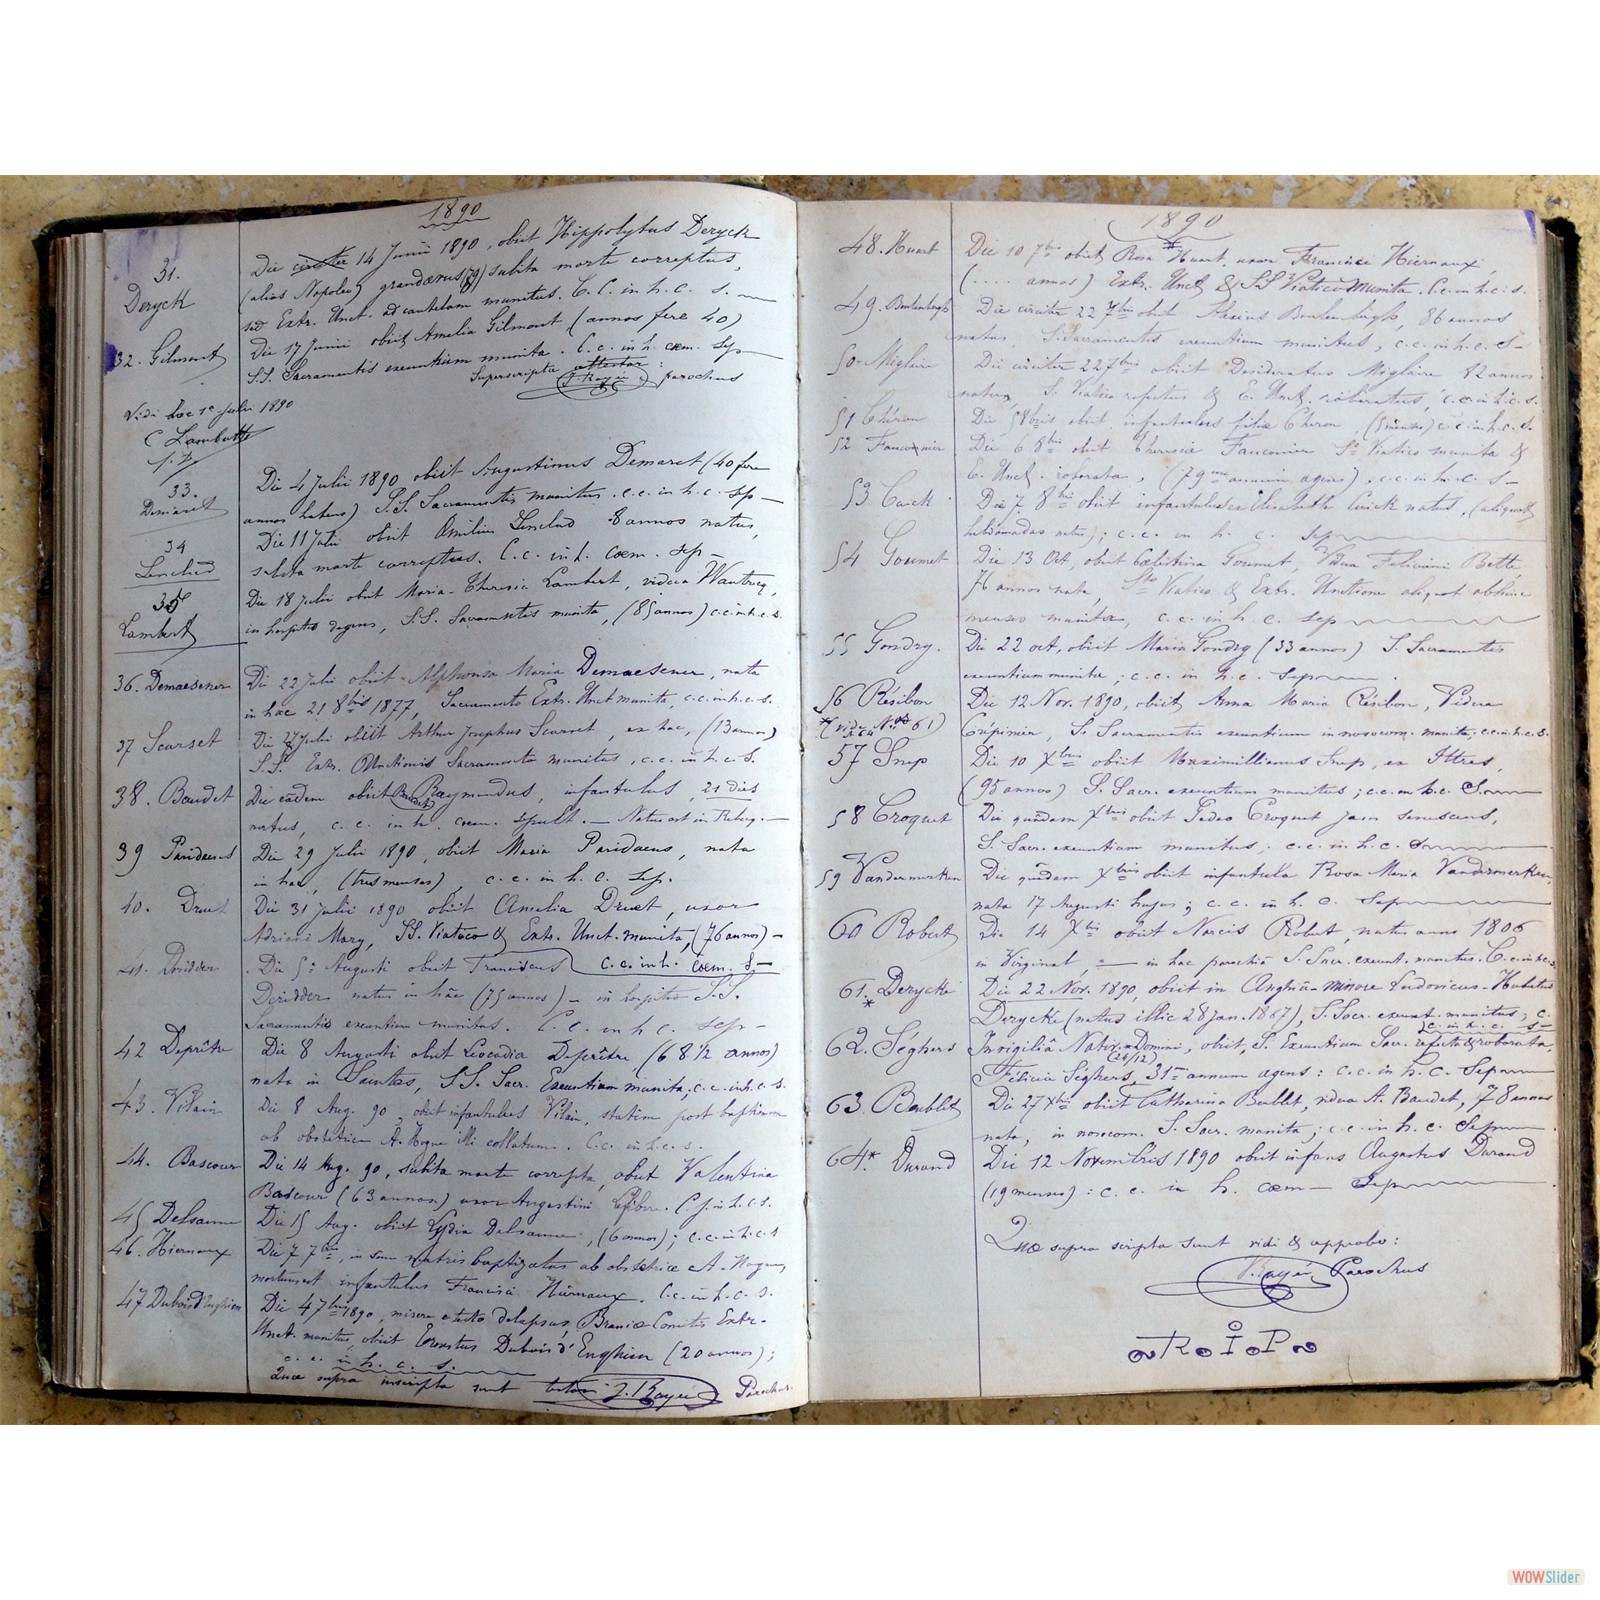 1890
31.
Deryck
Die circiter 14 Junii 1890, obiit Hippolytus Deryck
(alias Napoleo) grandævus (79) subita morte correptus,
sed Extr. Unct. ad cautelam munitus. C. C. in h. C. S.
32. Gilmont
Die 17 Junii obiit Amelia Gilmont (annos fere 40)
S.S. Sacramentis exeuntium munita. C. c. in h. cœm. Sep
Superscripta attestor:
parochus
Vidi hac 1e Julii 1890
C Lambotte
33.
Demaret
Die 4 Julii 1890 obiit Augustinus Demaret (40 fere
annos habens) S.S. Sacramentis munitus. c.c. in h. c. sep
34
Die 11 Julii obiit 8 annos natus,
subita morte correptus. C. c. in h. cœm. sep
35
Lambert
Die 18 Julii obiit Maria-Theresia Lambert, vidua
in hospitio degens, S.S. Sacramentis munita, (85 annos) c.c. in h. c. s.
36. Demaesener
Die 22 Julii obiit Alphonsa Maria Demaesener, nata
in hac 21 8bris 1877, Sacramento Extr. Unct munita, c.c. in h. c. s.
37 Scarset
Die 27 Julii obiit Arthur Josephus Scarset, ex hac, (13 annos)
S.S. Extr. Unctionis Sacramento munitus, c.c. in h. c. s.
38. Baudet
Die eâdem obiit Baudet Raymundus, infantulus, 21 dies
natus, c. c. in h. cœm. sepult. — Natus est in
39 Paridaens
Die 29 Julii 1890, obiit Maria Paridaens, nata
in hac, (tres menses) c. c. in h. c. sep.
40. Druet
Die 31 Julii 1890 obiit Amelia Druet, uxor
Adriani Mary, SS. Viatico & Extr. Unct. munita, (76 annos) —
c. c. in h. cœm. S—
41. Deridder
Die 5a Augusti obiit Franciscus
Deridder natus in hâc (75 annos) — in hospitio S.S.
Sacramentis exeuntium munitus. C. c. in h. c. sep —
42 Deprêtre
Die 8 Augusti obiit Leocadia Deprêtre (68 1/2 annos)
nata in Saintes, S.S. Sacr. Exeuntium munita, c. c. in h. c. s.
43. Vilain
Die 8 Aug. 90, obiit infantulus Vilain, statim post baptismum
ab obstetrice A. Hoyne illi collatum. C.c. in h. c. s.
44. Bascour
Die 14 Aug. 90, subita morte correpta, obiit Valentina
Bascour (63 annos) uxor Augustini in h. c. s.
45 Delsanne
Die 15 Aug. obiit Lydia Delsanne, (6 annos); c. c. in h. c. s
46. Hiernaux
Die 7 7bris, in sinu matris baptizatus ab obstetrice A.
infantulus Francisci Hiernaux. C. c. in h. c. s.
47 Dubois d'Enghien
Die 4 7bris 1890, misere e tecto delapsus, Braniæ Comitis Extr.
Unct. munitus, obiit Ernestus Dubois d'Enghien (20 annos);
c. c. in h. c. s.
Quæ supra inscripta sunt testor: Parochus.
1890
48. Huart
Die 10 7bris obiit Rosa Huart, uxor Francisci Hiernaux,
(.... annos) Extr. Unct & S.S Viatico munita. C.c. in h. c. s.
49.
Die circiter 22 7bris obiit 86 annos
natus, S. Sacramentis exeuntium munitus, c. c. in h. c. S—
50 Miglaire
Die circiter 22 7bris obiit Desideratus Miglaire 82 annos
natus, S. Viatico refectus & E. Unct. roboratus, c. c. in h. c. s.
51 Chiron
Die 5 8bris obiit infantulus filia Chiron, (5 menses) c. c. in h. c. s.
52 Fauconnier
Die 6 8bris obiit Theresia Fauconnier Sto Viatico munita &
E. Unct. roborata, (79um annum agens), c. c. in h. c. S—
53 Cuick.
Die 7 8bris obiit infantulus Elisabeth Cuick natus, (aliquot
hebdomadas natus); c. c. in h. c. sep
54 Goumet
Die 13 Oct, obiit Cælestina Goumet, Vidua Feliciani Bette
76 annos nata, Sto Viatico & Extr. Unctione aliquot abhinc
menses munita, c. c. in h. c. sep
55 Gondry.
Die 22 oct, obiit Maria Gondry (33 annos) S. Sacramentis
exeuntium munita; c. c. in h. c. Sep
56 Résibon
* (vide Nos 61)
& 64
Die 12 Nov. 1890, obiit Anna Maria Résibon, Vidua
Crépinier, S. Sacramentis exeuntium in nosocom. munita; c.c. in h. c. s.
57 Snep
Die 10 Xbris obiit Maximillianus Snep, ex Ittres,
(95 annos) S. Sacr. exeuntium munitus; c. c. in h. c. S.
58 Croquet
Die quâdam Xbris obiit Croquet jam senescens,
S. Sacr. exeuntium munitus; c. c. in h. c. S
59 Vandermerken
Die quâdam Xbris obiit infantula Rosa Maria Vandermerken,
nata 17 Augusti hujus; c. c. in h. c. Sep
60 Robert
Die 14 Xbris obiit Narcis Robert, natus anno 1806
in Virginal, — in hac parochia S. Sacr. exeunt. munitus. C. c. in h. c. s.
61. * Derycke
Die 22 Nov. 1890, obiit in Anghiâ-minore Ludovicus-Hubertus
Derycke (natus illic 28 Jan. 1867), S. Sacr. exeunt. munitus; c.
c. in h. c. s—
62. Séghers
In vigiliâ Nativ. Domini, obiit, S. Exeuntium Sacr. refecta & roborata,
(24/12)
Félicia Séghers, 31um annum agens: c. c. in h. c. Sep
63. Boublet
Die 27 Xbris obiit Catharina Boublet, vidua A. Baudet, 78 annos
nata, in nosocom. S. Sacr. munita; c. c. in h. c. Sep
64* Durand
Die 12 Novembris 1890 obiit infans Augustus Durand
(19 menses): c. c. in h. cœm — Sep
Quæ supra scripta sunt vidi & approbo:
Parochus
R.I.P.
WOWSlider